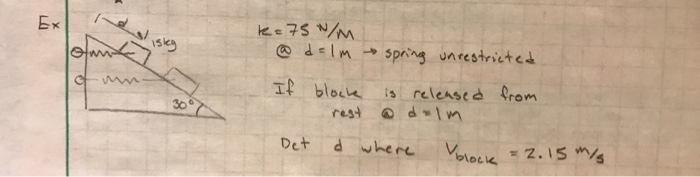 Ex
d
15kg
30°
k = 75 N/M
@ d = 1M → spring unrestricted
If block is released from
rest @ d = 1M
Det d where Vblock = 2.15 m/s